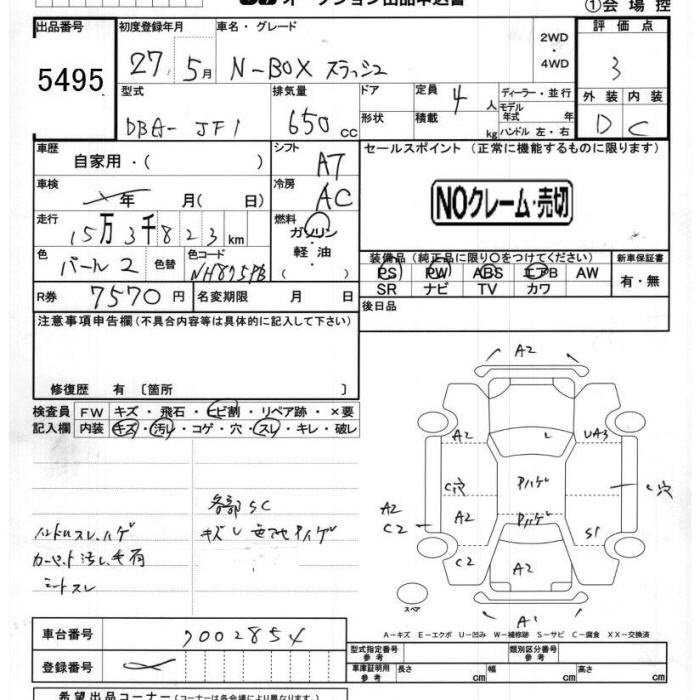 オークション出品申込書
①会場控
出品番号 初度登録年月 車名・グレード 評価点
5495 27. 5月 N-BOX スラッシュ 2WD ・ 4WD 3
型式 排気量 ドア 定員 ディーラー・並行 外装 内装
DBA- JF1 650 cc 形状 積載 4人 kg モデル年式 年 ハンドル 左・右 D C
車歴 自家用・( ) シフト AT セールスポイント (正常に機能するものに限ります)
車検 年 月( 日) 冷房 AC
NOクレーム・売切
走行 15万3千823km 燃料 ガソリン 軽油 ( )
色 パール2 色替 色コード NH875PB
装備品 (純正品に限り○をつけてください) 新車保証書
PS PW ABS エアB AW 有・無
SR ナビ TV カワ
R券 7570円 名変期限 月 日 後日品
注意事項申告欄 (不具合内容等は具体的に記入して下さい)
修復歴 有 〔箇所 〕
検査員 FW キズ・飛石・ヒビ割・リペア跡・×要
記入欄 内装 キズ・汚レ・コゲ・穴・スレ・キレ・破レ
各部SC
ハンドルスレ、ハゲ
カーペット汚レ
シートスレ
A2
A2 L UA3
C穴 C穴
A2 C2
A2 S1
C2 A2
スペア
A-キズ E-エクボ U-凹み W-補修跡 S-サビ C-腐食 XX-交換済
車台番号 7002854
登録番号
型式指定番号 参考 類別区分番号 参考
車庫証明用 参考 長さ cm 幅 cm 高さ cm
希望出品コーナー (コーナーは各会場により異なります)